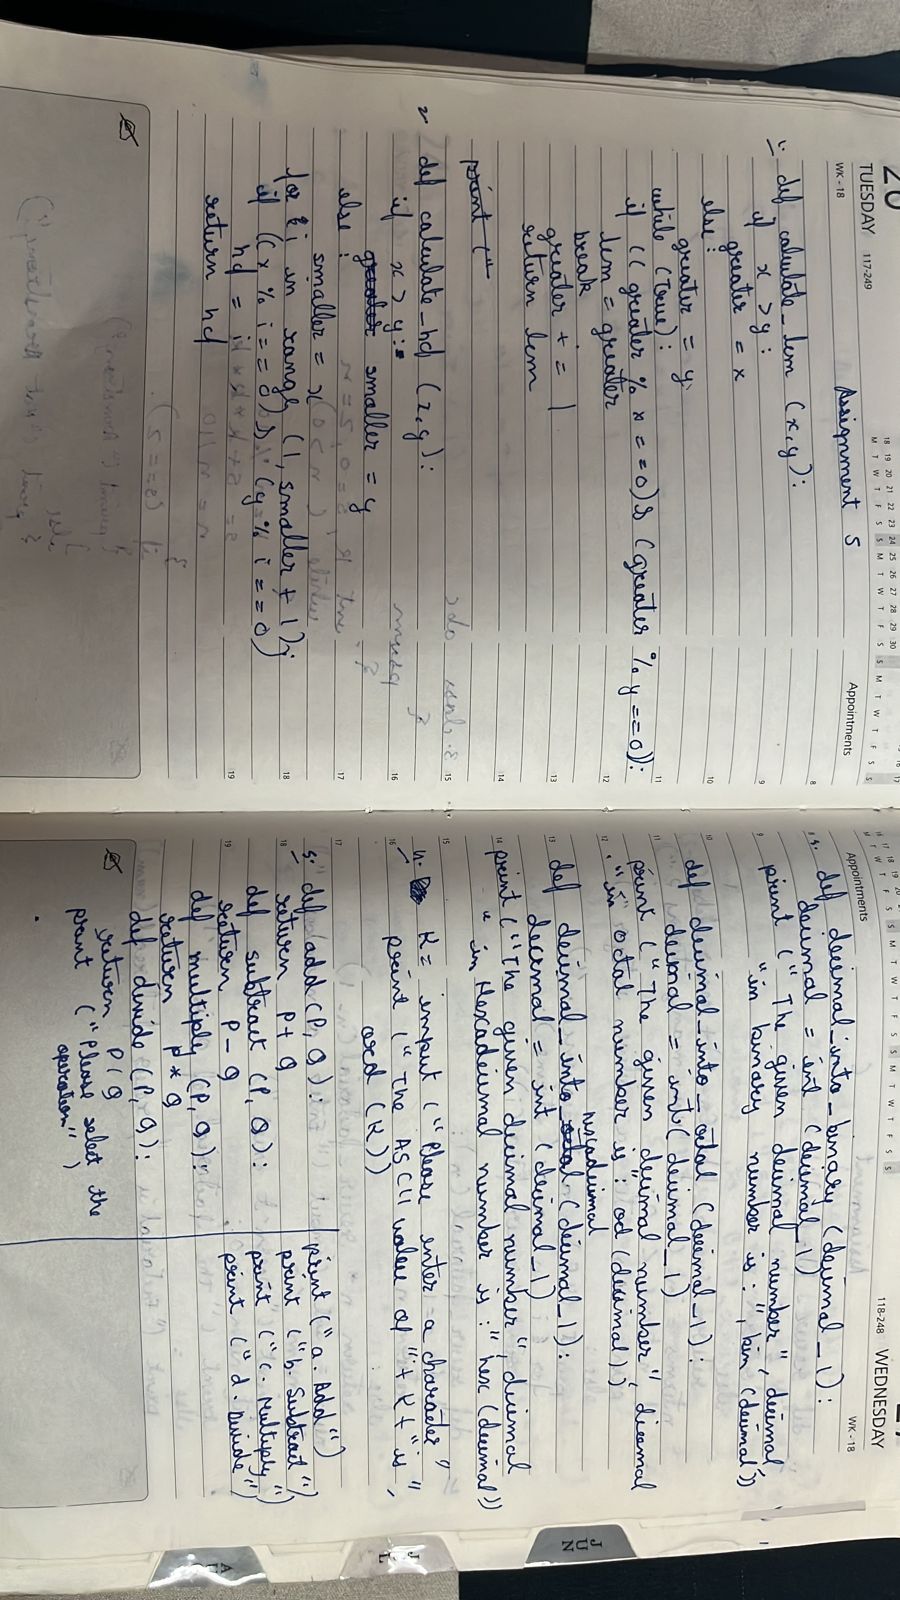 TUESDAY 117-249
WK-18
Appointments
Assignment 5
1. def calculate_lcm (x,y):
if x > y :
greater = x
else :
greater = y
while (True):
if (( greater % x == 0) & (greater % y == 0)):
lcm = greater
break
greater + = 1
return lcm
print ("
2. def calculate_hcf (x,y):
if x > y :
smaller = y
else :
smaller = x
for i in range (1, smaller + 1);
if (x % i == 0) & (y % i == 0)
hcf = i
return hcf
Appointments
118-248 WEDNESDAY
WK-18
3. def decimal_into_binary (decimal_1):
decimal = int (decimal_1)
print (" The given decimal number", decimal
"in binary number is : ", bin (decimal))
def decimal_into_octal (decimal_1):
decimal = int (decimal_1)
print (" The given decimal number", dicemal
"in octal number is : od (decimal))
def decimal_into_hexadecimal (decimal_1):
decimal = int (decimal_1)
print ("The given decimal number", decimal
" in Hexadecimal number is :" hex (decimal))
4. K = input ("Please enter a character"
print ("The ASCII value of "+ K + " is ,
ord (K))
5. def add (P, Q):
return P + Q
def subtract (P, Q):
return P - Q
def multiply (P, Q):
return P * Q
def divide (P, Q):
return P / Q
print ("Please select the
operation")
print ("a. Add")
print ("b. Subtract")
print ("c. Multiply")
print ("d. Divide")
JUN